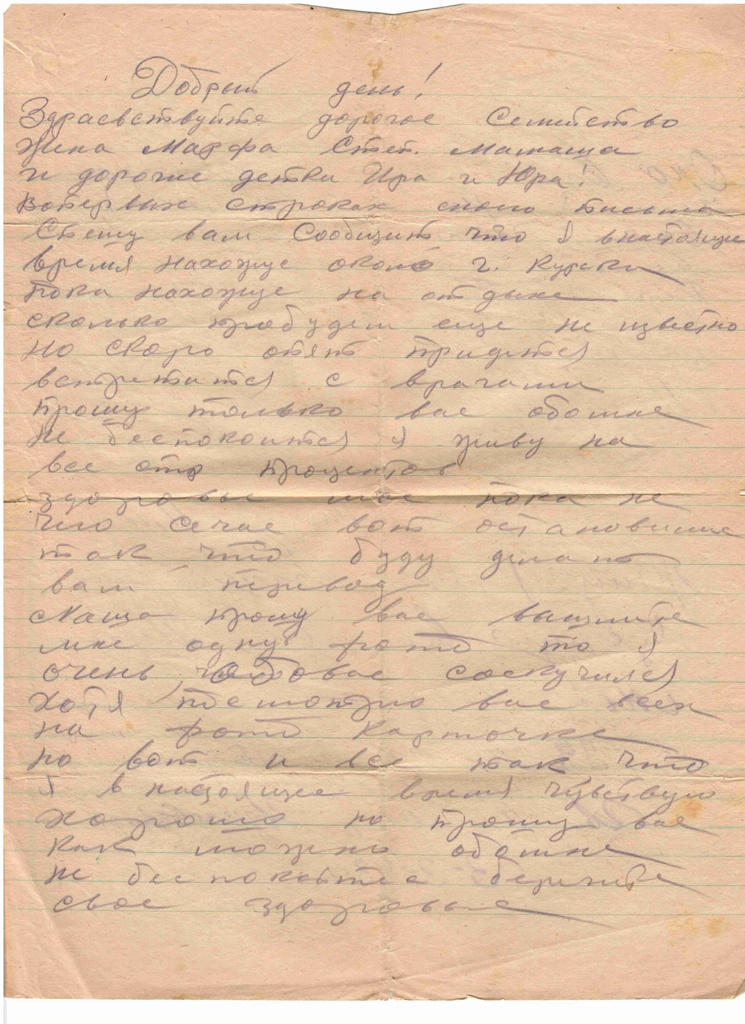 Добрый день!
Здраевствуйте дорогое Семейство
Жена Марфа Степ. Мамаша
и дорогие детки Ира и Юра!
Вопервых строках своего письма
Спешу вам Сообщит что я внастояще
время нахожус около г. Курска
пока нахожус на отдыхе
сколько пробудем еще не извстно
но скоро опят придется
встретится с врагами
прошу только вас обомне
не беспокоится я живу на
все сто процентов
здоровье мое пока не
чего сечас вот остановимся
так что буду делат
вам перевод
прошу вас вышлите
мне одну фото то я
очень соскучился
Хотя посмотрю вас всех
на фото карточке
но вот и все так что
я в настоящее время чувствую
хорошо но прошу вас
как можно обомне
не беспокойтес берегите
свое здоровье